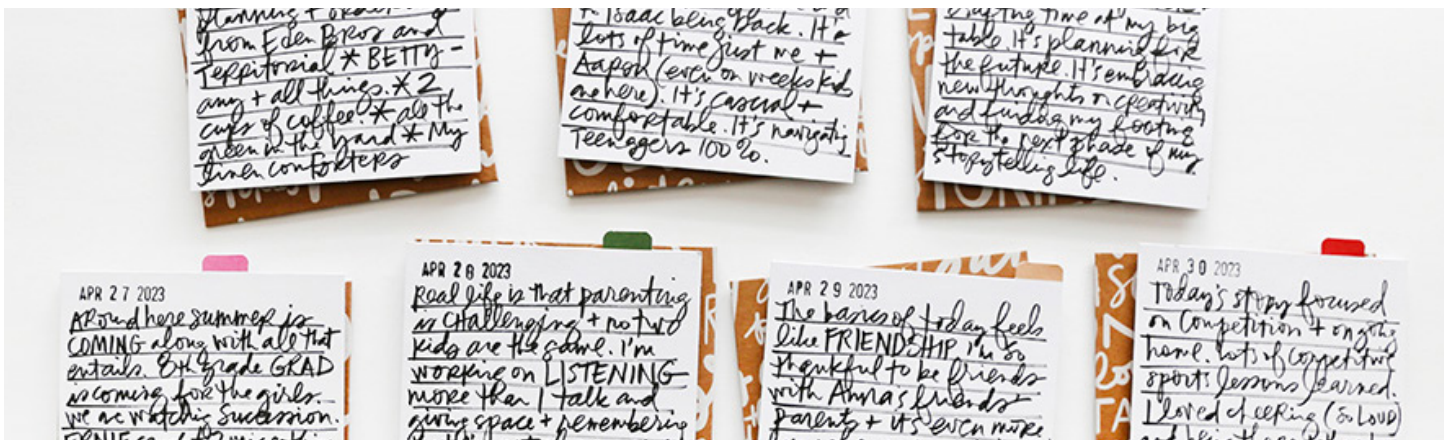 planning +
from Eden Bros and
Territorial * BETTY -
any + all things. * 2
cups of coffee. * all the
green in the yard * My
linen comforters
+ Isaac being back. It's
lots of time just me +
Aaron (even on weeks kids
are here). It's casual +
comfortable. It's navigating
Teenagers 100%.
the time at my big
table. It's planning for
the future. It's embracing
new thoughts on creativity
and finding my footing
for the next phase of my
storytelling life.
APR 27 2023
Around here summer is
COMING along with all that
entails. 8th grade GRAD
is coming for the girls.
we are watching Succession.
APR 28 2023
Real life is that parenting
is CHallenging + no two
kids are the same. I'm
working on LISTENING
more than I talk and
giving space + remembering
APR 29 2023
The basics of today feels
like FRIENDSHIP I'm so
thankful to be friends
with Anna's friends'
parents + it's even more
APR 30 2023
Today's story focused
on Competition + ongoing
home. Lots of competitive
sports lessons learned.
I loved cheering (so LOUD)